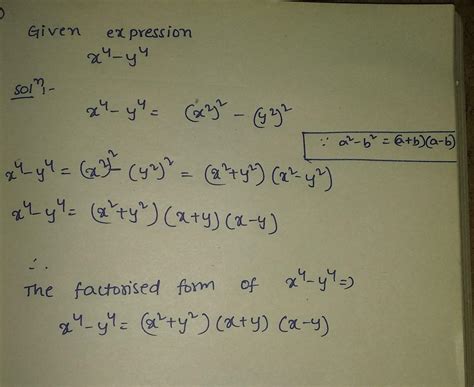 Given expression
x⁴-y⁴
solⁿ:-
x⁴-y⁴ = (x²)² - (y²)²
∵ a²-b² = (a+b)(a-b)
x⁴-y⁴ = (x²)² - (y²)² = (x²+y²) (x²-y²)
x⁴-y⁴ = (x²+y²) (x+y) (x-y)
∴
The factorised form of x⁴-y⁴ =>
x⁴-y⁴ = (x²+y²) (x+y) (x-y)